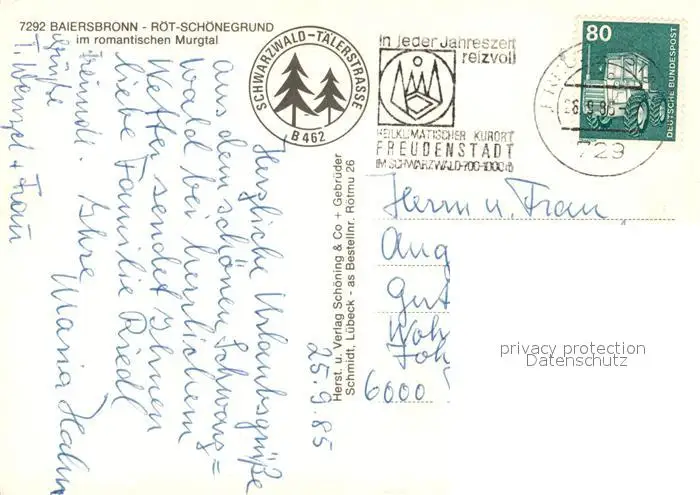 7292 BAIERSBRONN - RÖT-SCHÖNEGRUND
im romantischen Murgtal
SCHWARZWALD-TÄLERSTRASSE
B 462
in jeder Jahreszeit
reizvoll
HEILKLIMATISCHER KURORT
FREUDENSTADT
IM SCHWARZWALD 700-1000 m
80
DEUTSCHE BUNDESPOST
26.9.85
729
25.9.85
Herzliche Urlaubsgrüße
aus dem schönen Schwarz=
wald bei herrlichem
Wetter sendet Ihnen
liebe Familie Riedl
Ihre Maria Hahn
freundl.
Grüße
T. Wenzel + Frau
Herst. u. Verlag Schöning & Co + Gebrüder
Schmidt, Lübeck - as Bestellnr. Rötmu 26
Herrn u. Frau
Aug
Gut
Woh
6000
privacy protection
Datenschutz